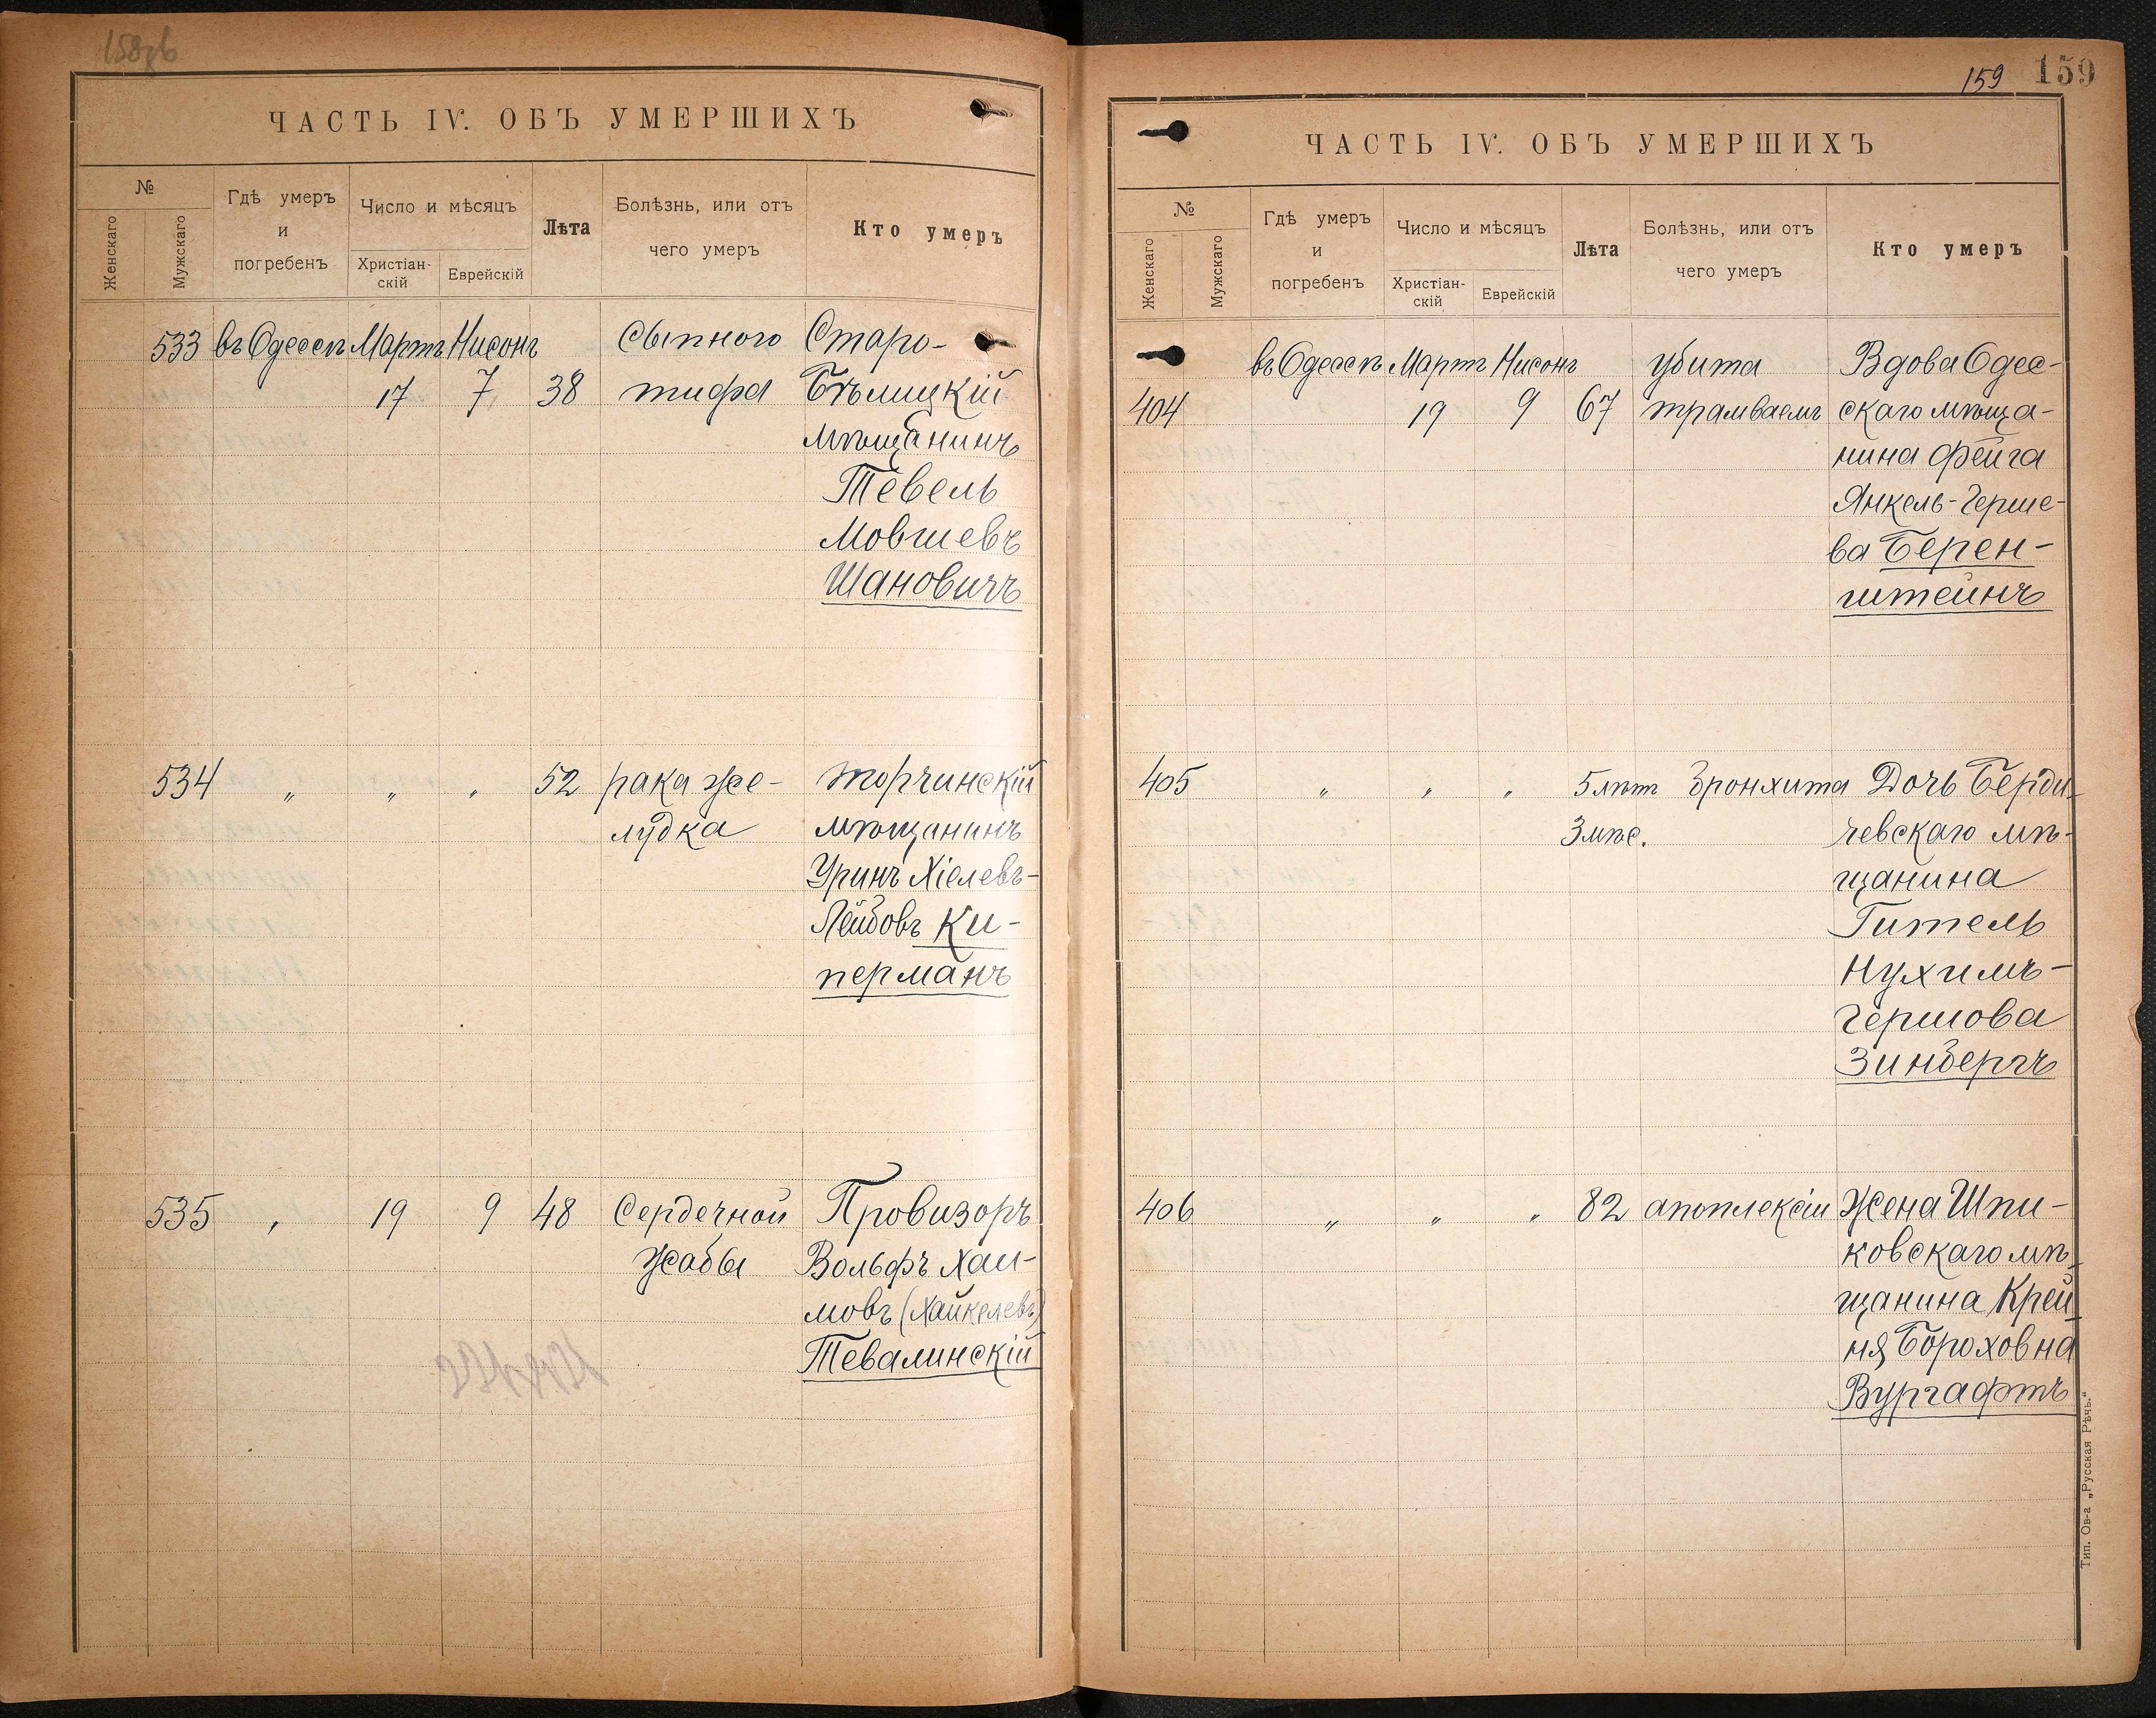 ЧАСТЬ IV. ОБЪ УМЕРШИХЪ
№
Женскаго
Мужскаго
Гдѣ умеръ
и
погребенъ
Число и мѣсяцъ
Христіан-
скій
Еврейскій
Лѣта
Болѣзнь, или отъ
чего умеръ
Кто умеръ
533 въ Одессѣ Мартъ Нисонъ сыпного Старо-
17 7 38 тифа Бѣлицкій
мѣщанинъ
Тевель
Мовшевъ
Шановичъ
534 „ „ „ 52 рака же- Торчинскій
лудка мѣщанинъ
Уринъ Хіелевъ-
Лейбовъ Ки-
перманъ
535 „ 19 9 48 Сердечной Провизоръ
жабы Вольфъ Хаи-
мовъ (Хайкелевъ)
Тевалинскій
159 159
ЧАСТЬ IV. ОБЪ УМЕРШИХЪ
№
Женскаго
Мужскаго
Гдѣ умеръ
и
погребенъ
Число и мѣсяцъ
Христіан-
скій
Еврейскій
Лѣта
Болѣзнь, или отъ
чего умеръ
Кто умеръ
въ Одессѣ Мартъ Нисонъ убита Вдова Одес-
404 19 9 67 трамваемъ скаго мѣща-
нина Фейга
Янкель-Герше-
ва Берен-
штейнъ
405 „ „ „ 5 лѣтъ бронхита Дочь Берди-
3 мѣс. чевскаго мѣ-
щанина
Гитель
Нухимъ-
Гершова
Зинбергъ
406 „ „ „ 82 апоплексіи Жена Шпи-
ковскаго мѣ-
щанина Крей-
ня Бороховна
Вургафтъ
Тип. Ов-а „Русская Рѣчь."